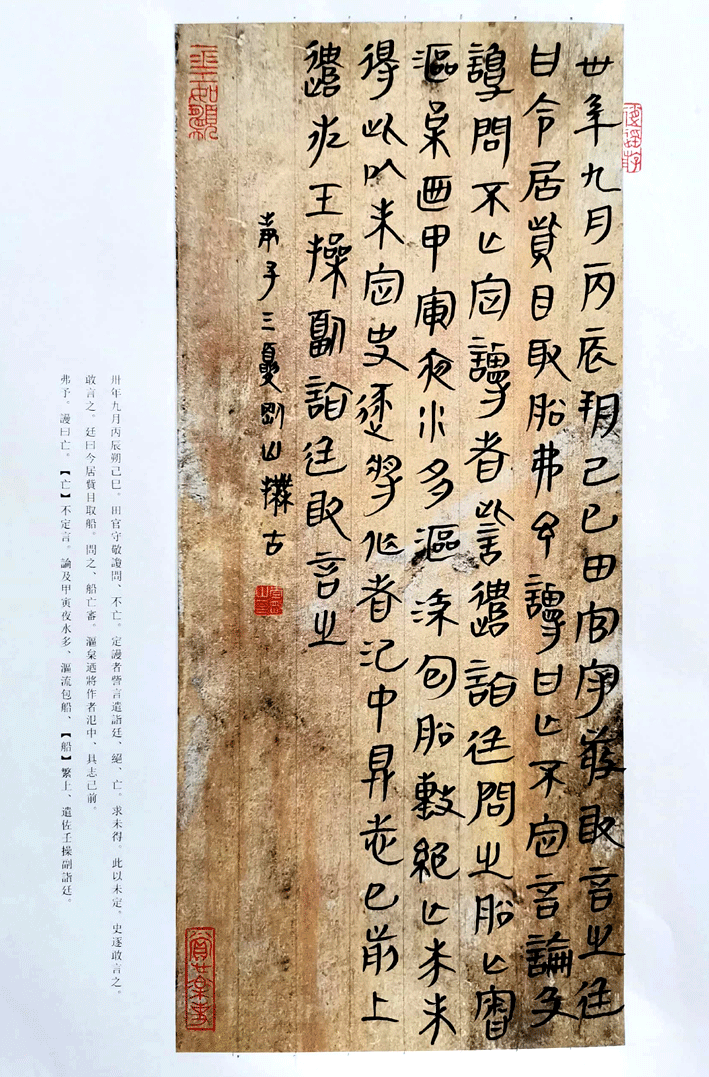 卅年九月丙辰朔己巳田官守敬敢言之廷
曰令居貲目取船弗予謾曰亡不定言論及
讂問不亡定謾者訾遣詣廷問之船亡審
漚枲迺甲寅夜水多漚流包船繫絕亡求未
得此以未定史逐將作者氾中具志已前上
遣佐壬操副詣廷敢言之
庚子三夏劉山橅古
卅年九月丙辰朔己巳。田官守敬讂問、不亡。定謾者訾言遣詣廷、絕、亡。求未得。此以未定。史逐敢言之。
敢言之。廷曰今居貲目取船。問之、船亡審。漚枲迺將作者氾中、具志已前。
弗予。謾曰亡。【亡】不定言。論及甲寅夜水多、漚流包船、【船】繁上、遣佐壬操副詣廷。